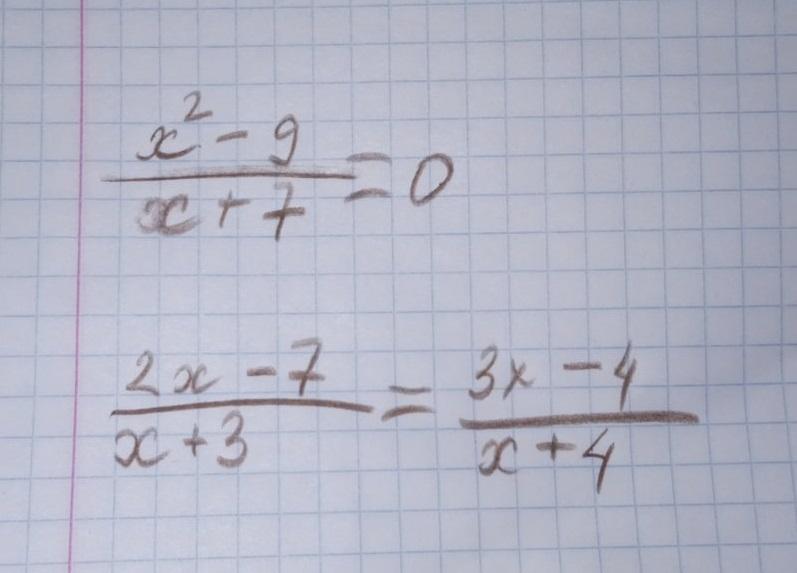 (x² - 9)/(x + 7) = 0
(2x - 7)/(x + 3) = (3x - 4)/(x + 4)